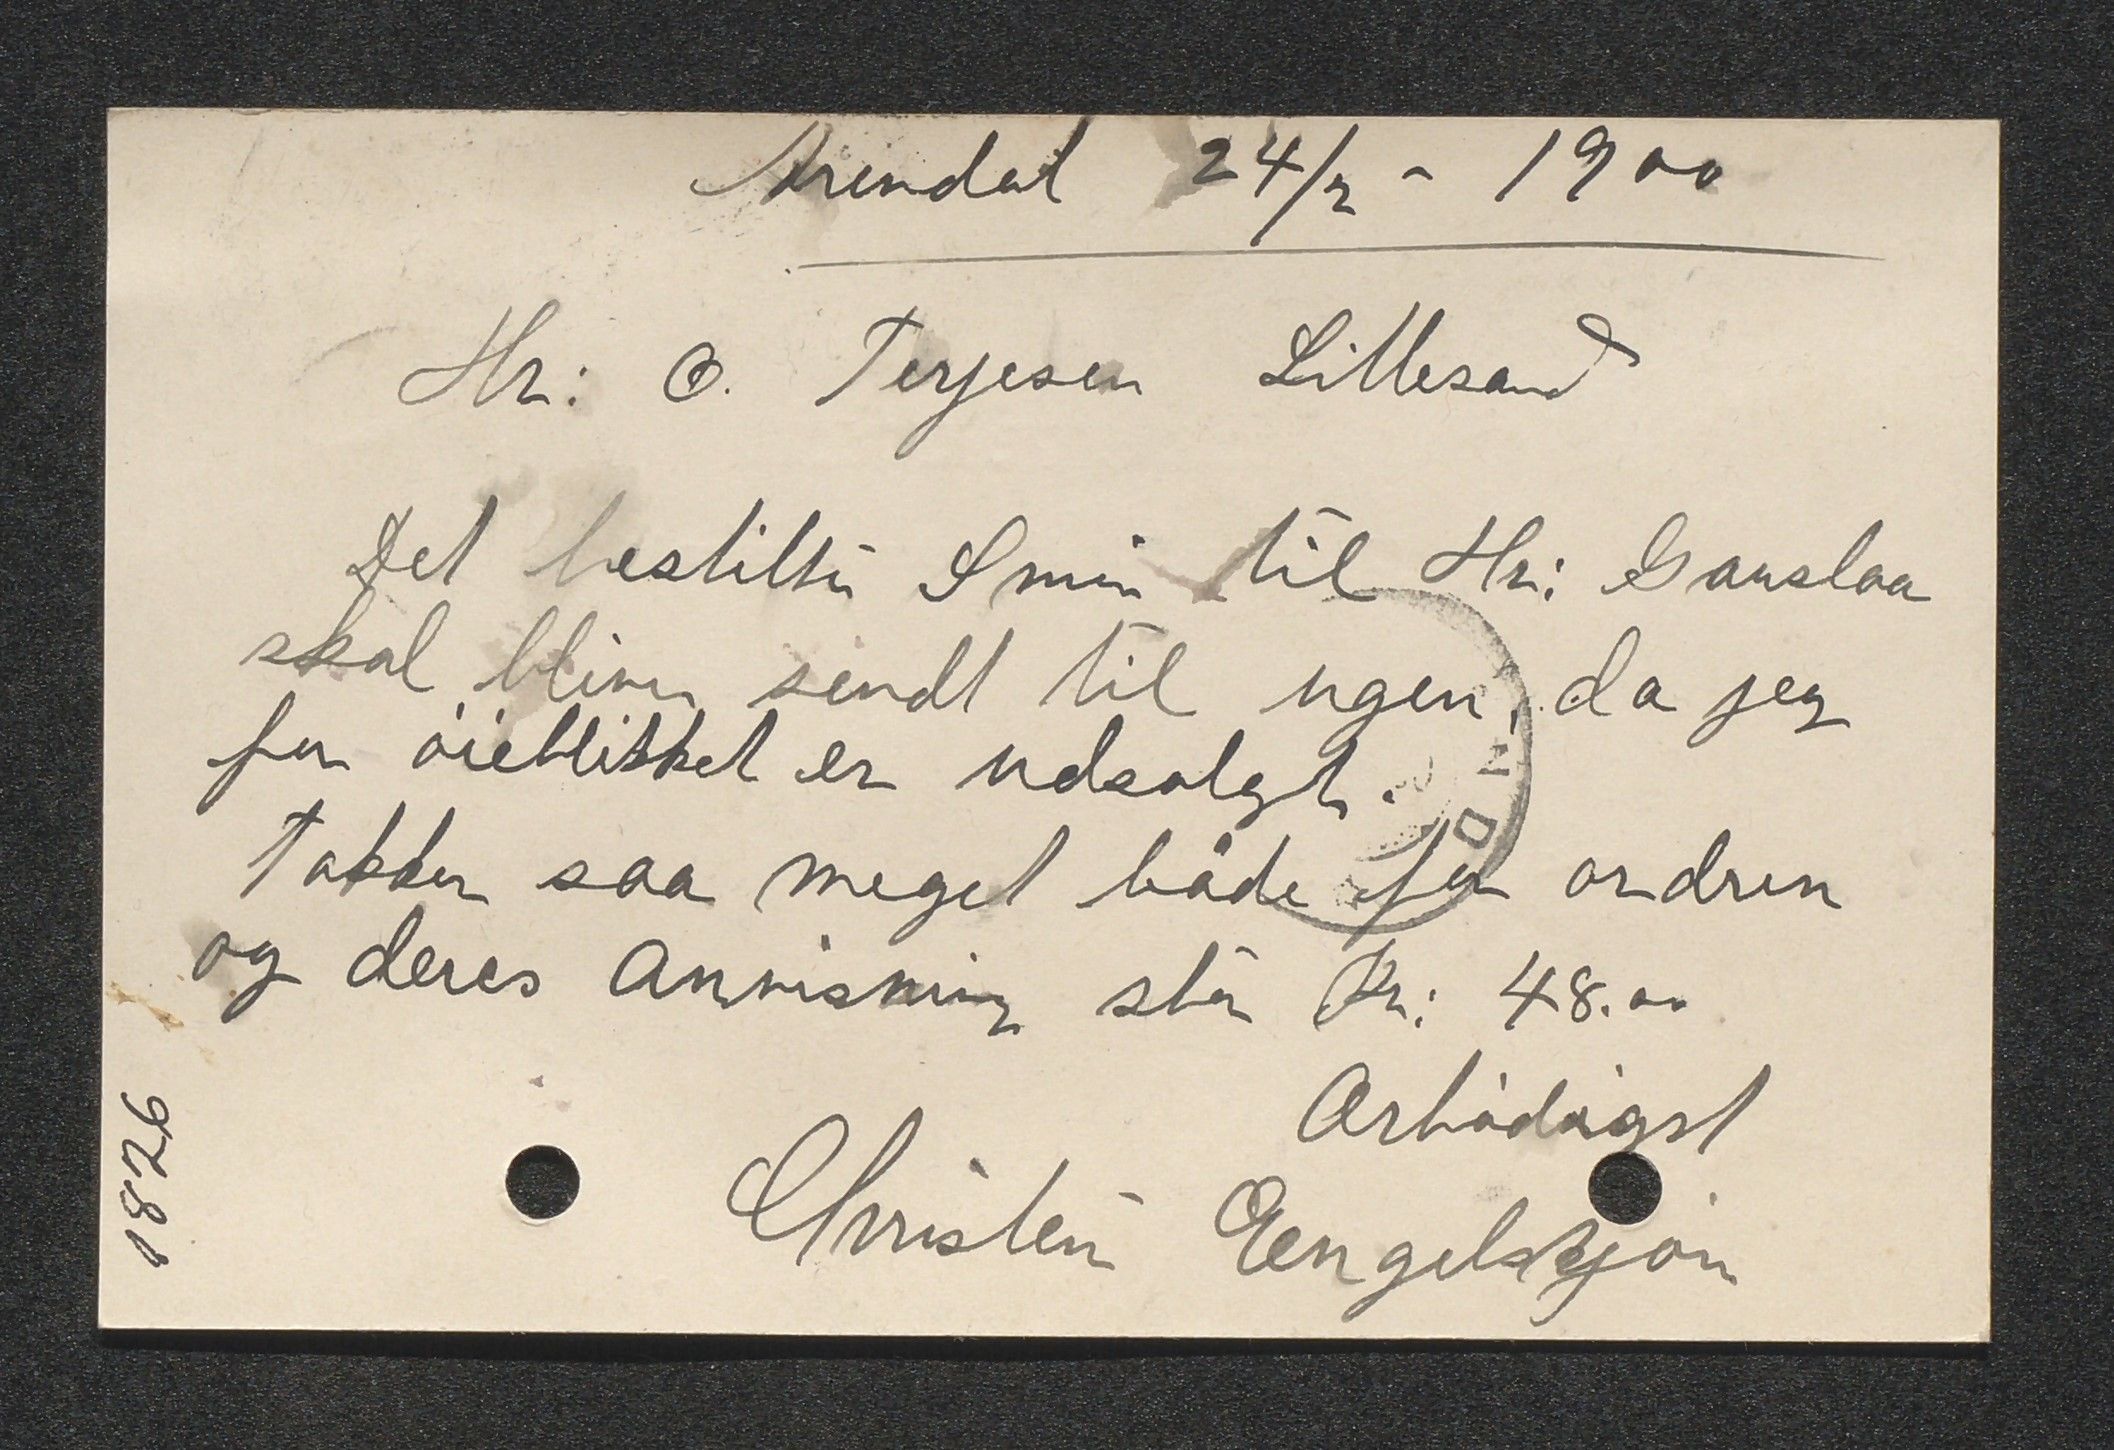 Arendal 24/2 - 1900
Hr: O. Terjesen Lillesand
Det bestilte Smin til Hr: Gauslaa
skal bliver sendt til ugen, da jeg
for öieblikket er udsolgt.
Takker saa meget både for ordren
og deres Anvisning stör Kr: 48.00
Ærbödigst
Christen Engelskjön
1826